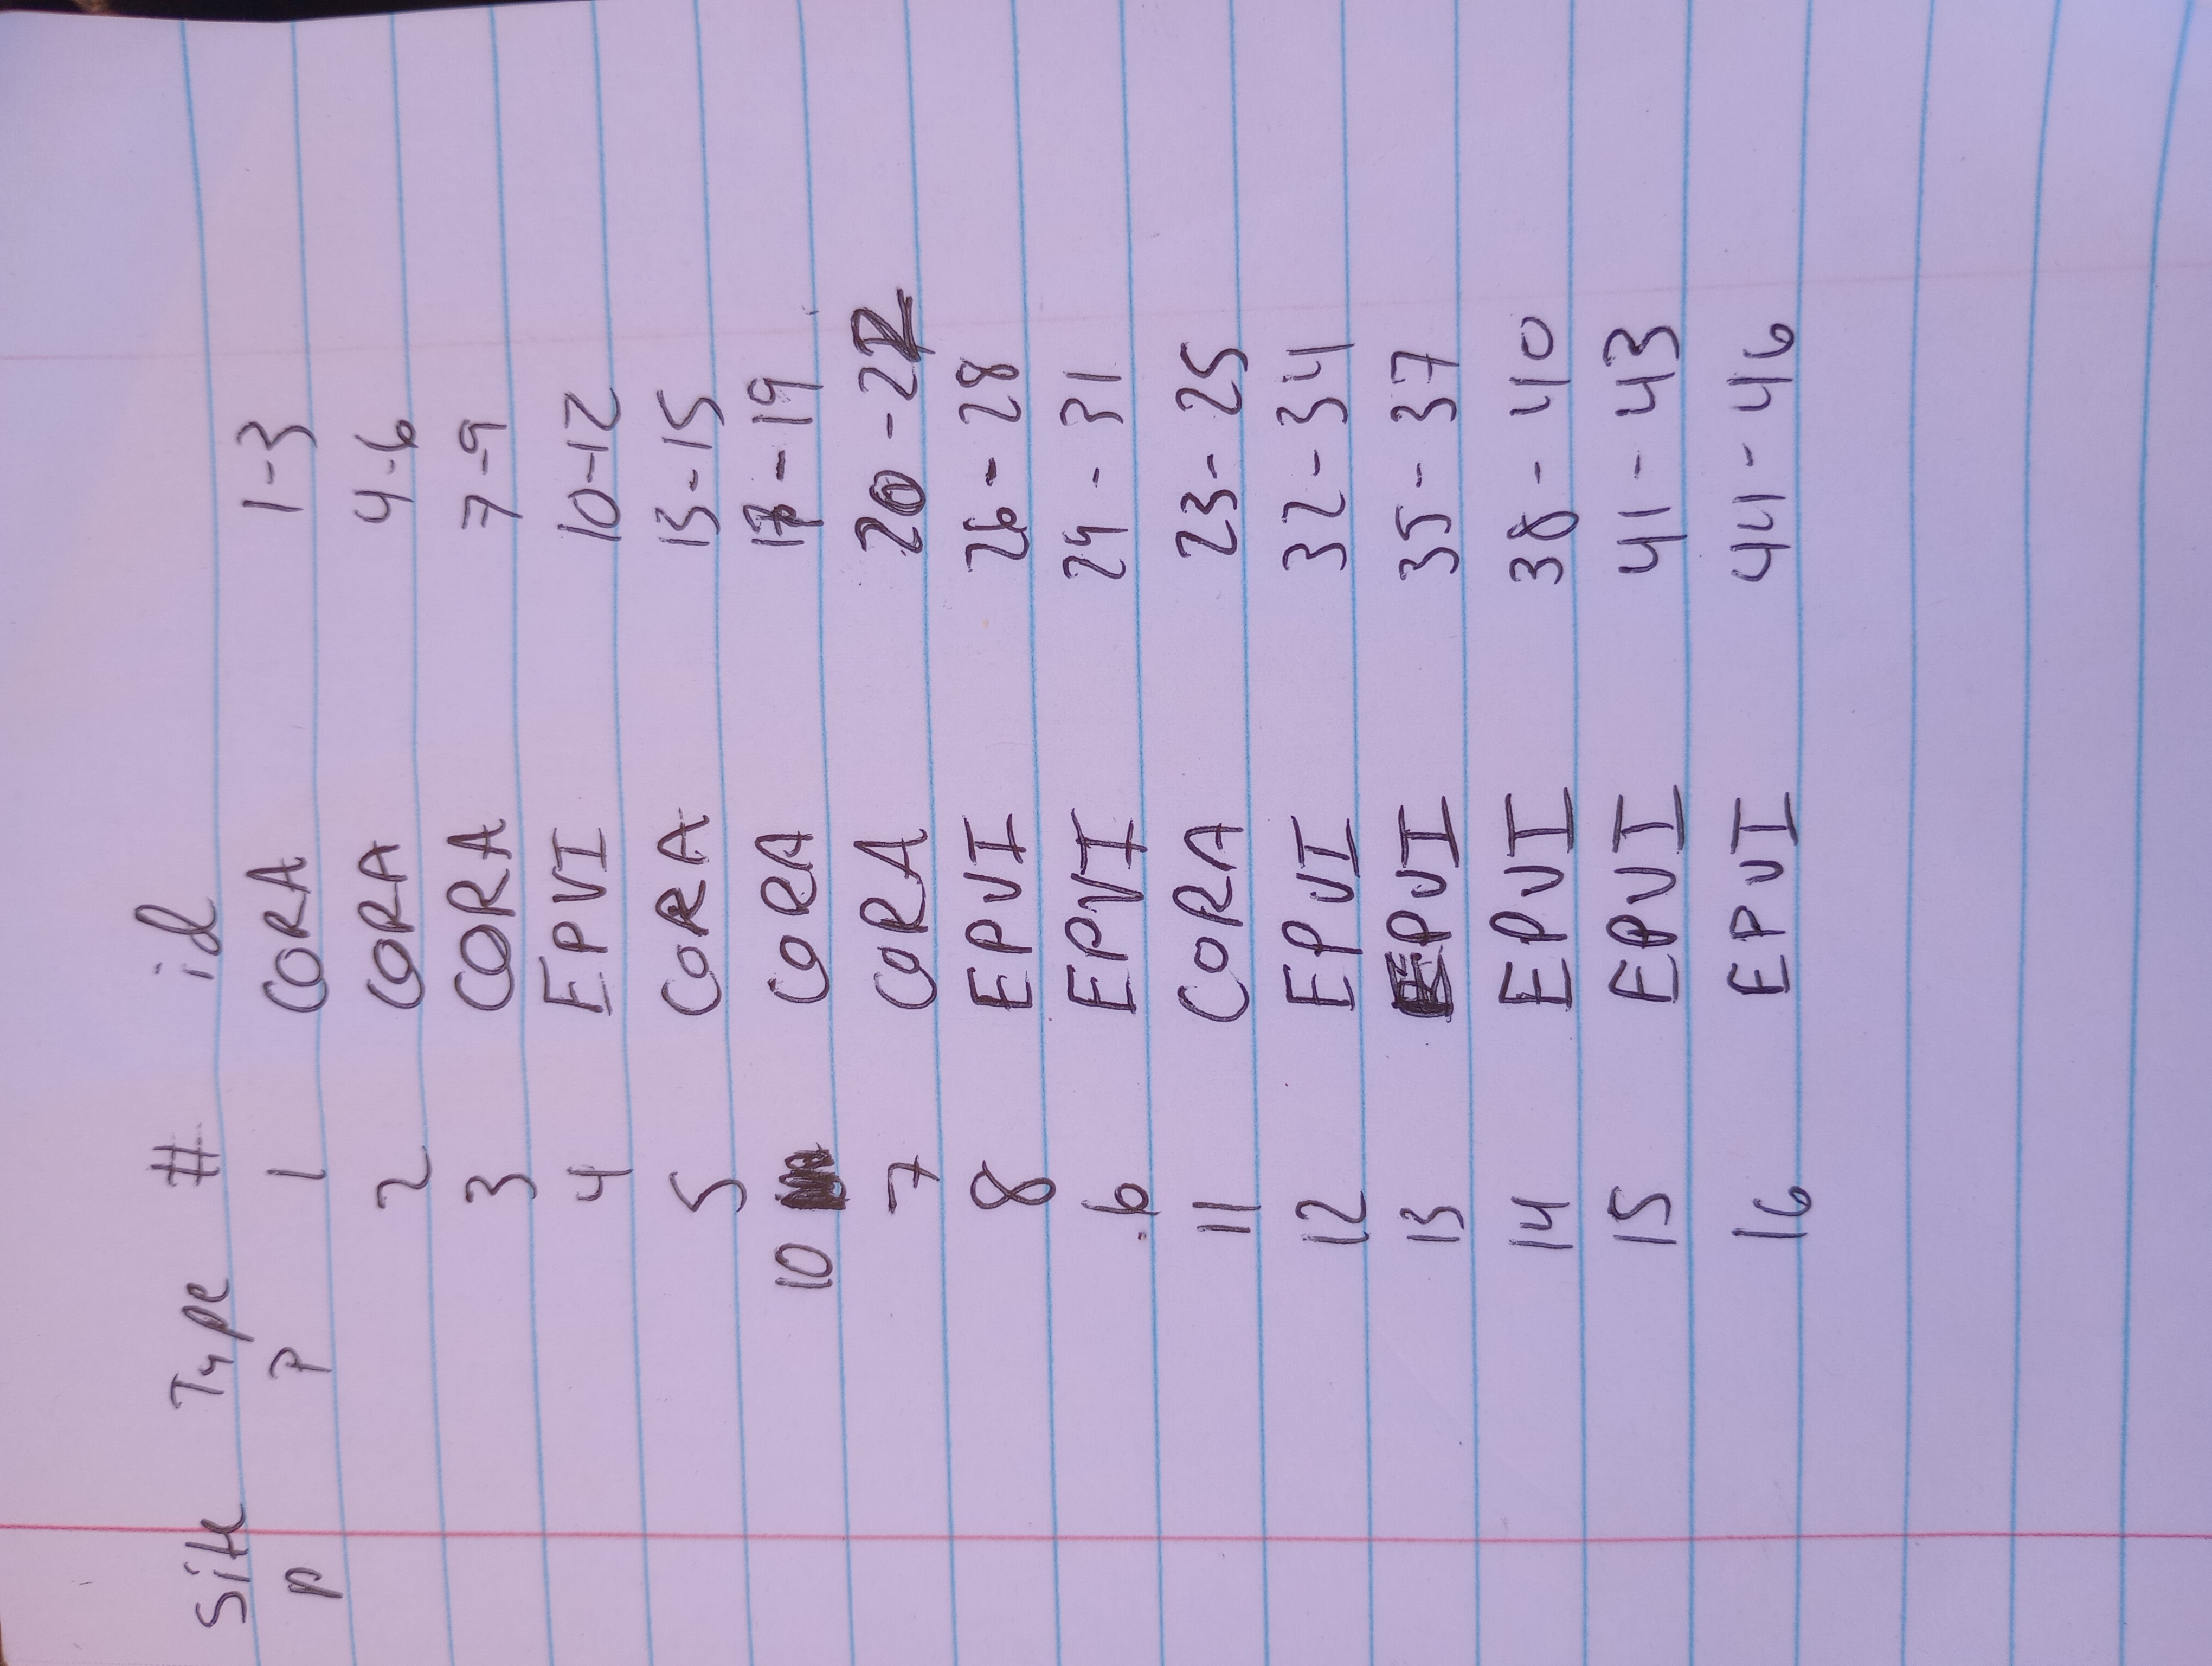 Site Type # id
P P 1 CORA 1-3
2 CORA 4-6
3 CORA 7-9
4 EPVI 10-12
5 CORA 13-15
10 CORA 17-19
7 CORA 20-22
8 EPVI 26-28
6 EPVI 29-31
11 CORA 23-25
12 EPVI 32-34
13 EPVI 35-37
14 EPVI 38-40
15 EPVI 41-43
16 EPVI 44-46